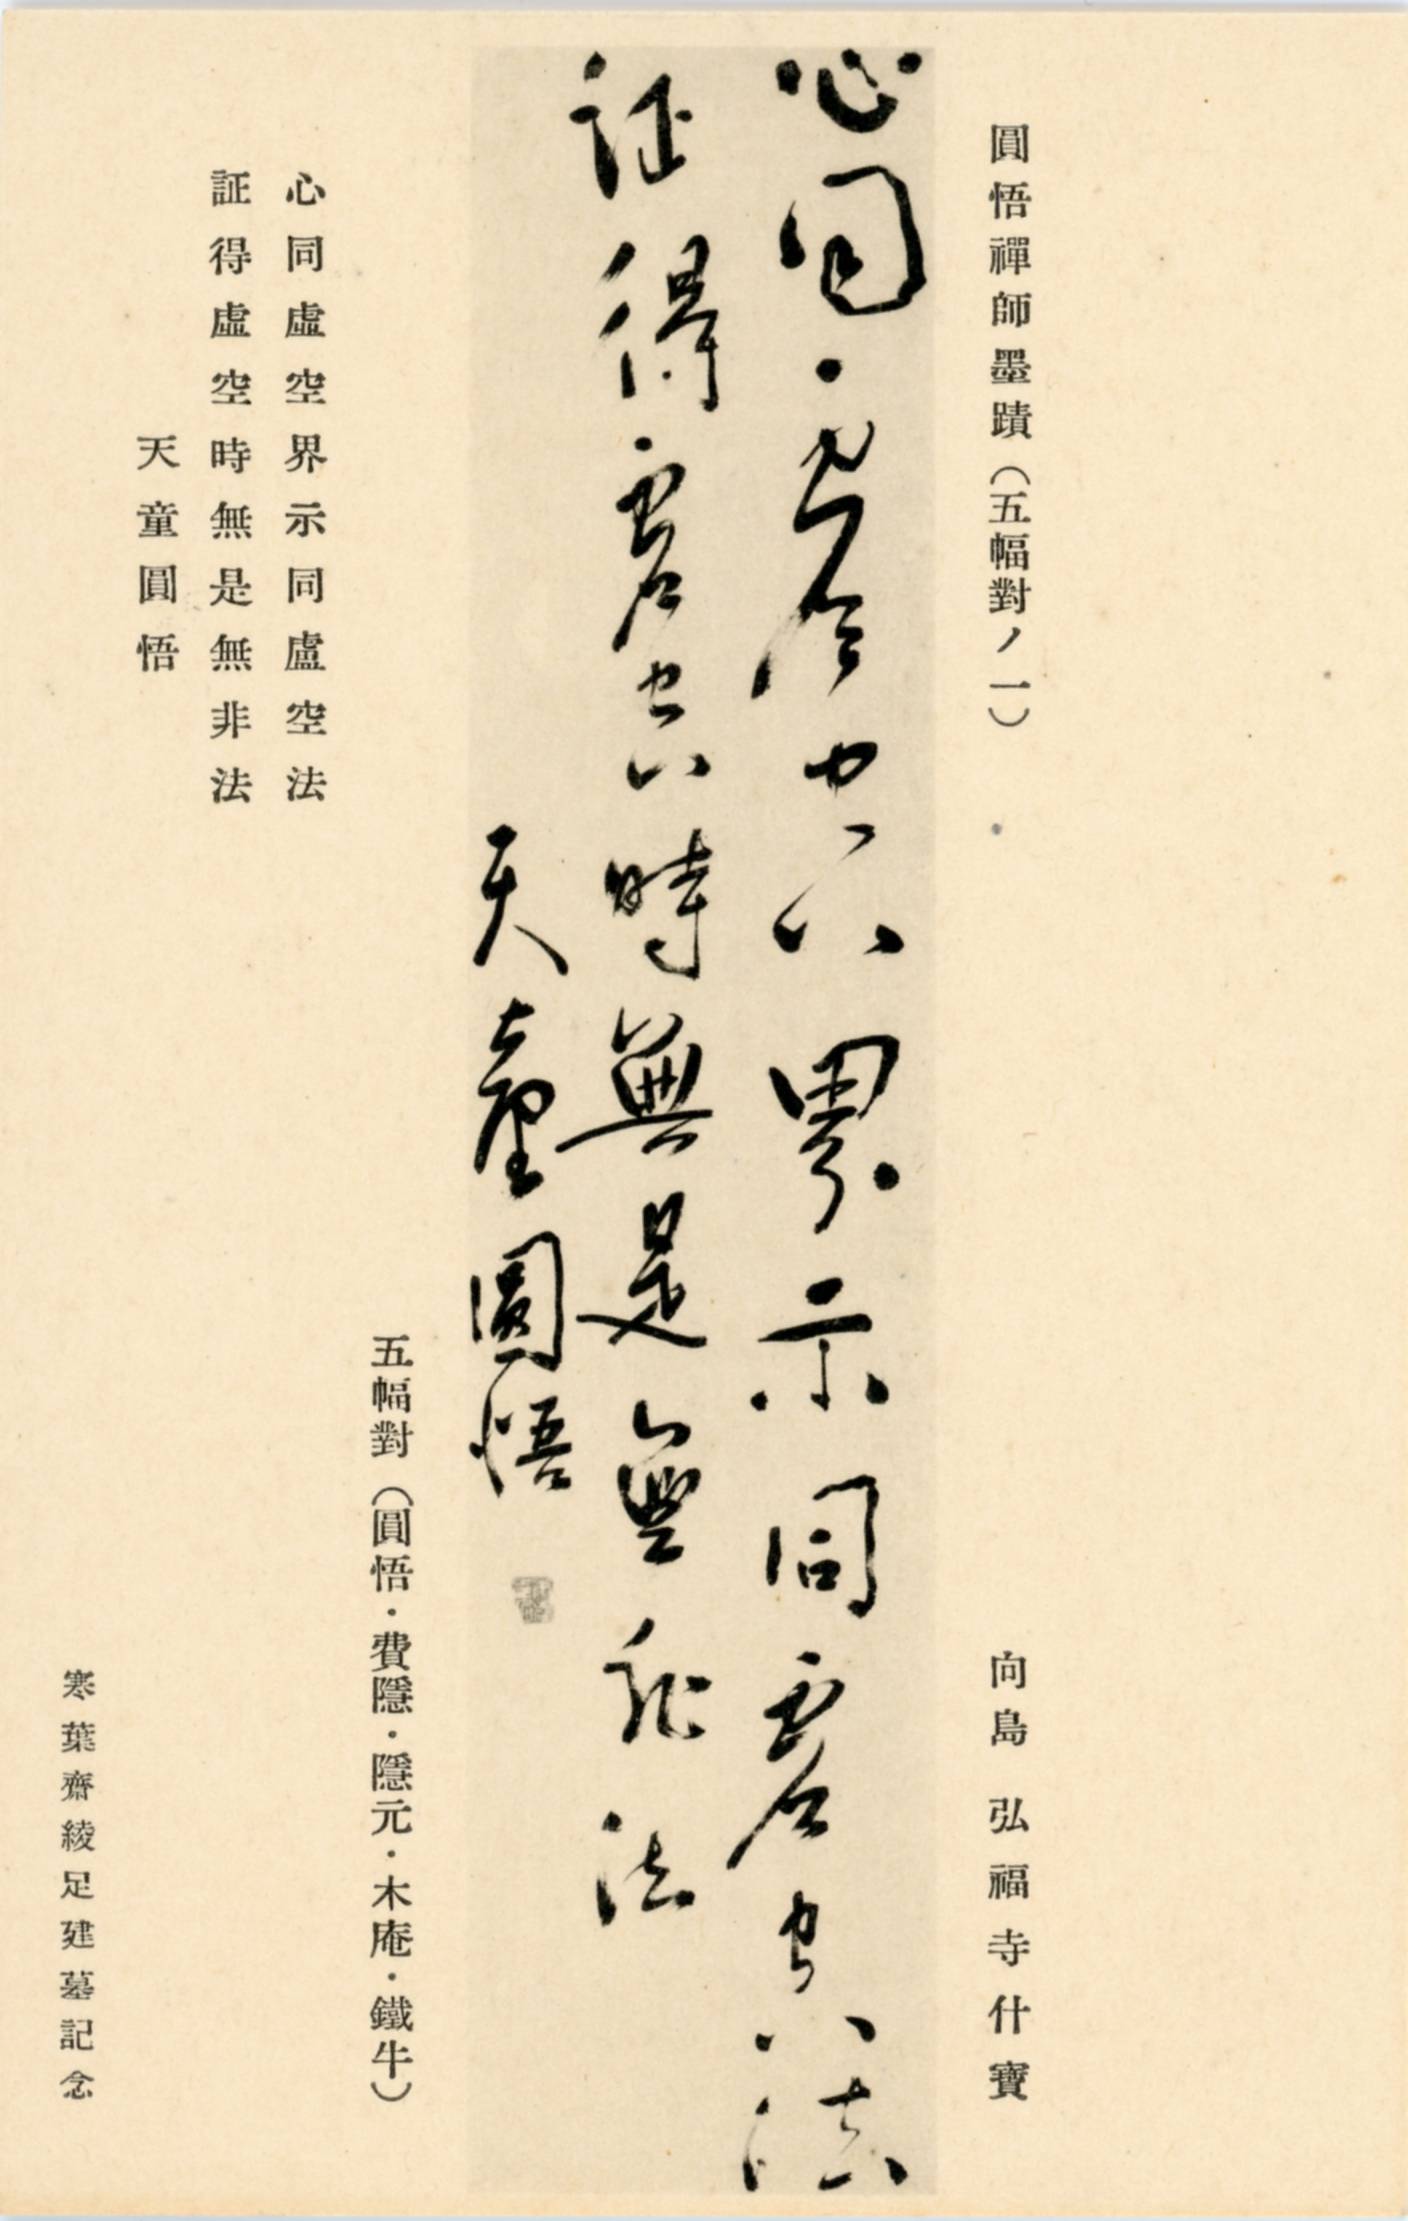 圓悟禪師墨蹟（五幅對ノ一）
向島 弘福寺什寶
心同虛空界示同虛空法
証得虛空時無是無非法
天童圓悟
五幅對（圓悟・費隱・隱元・木庵・鐵牛）
心同虛空界示同盧空法
証得虛空時無是無非法
天童圓悟
寒葉齋綾足建墓記念